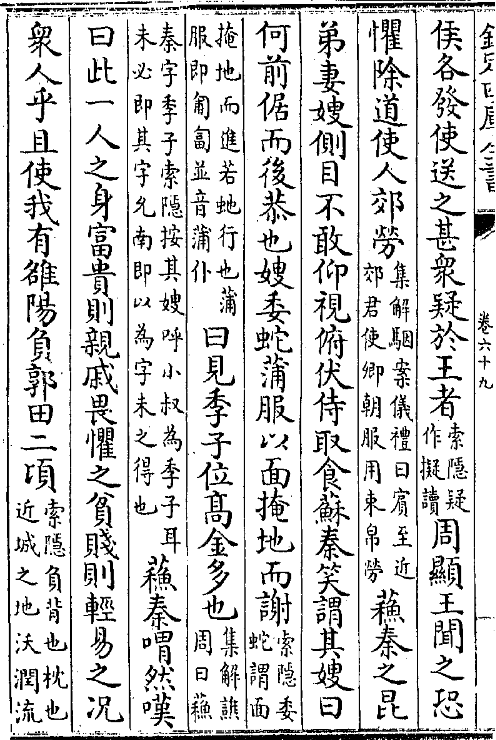 欽定四庫全書
卷六十九
侯各發使送之甚衆疑於王者索隱疑作擬讀周顯王聞之恐
懼除道使人郊勞集解駰案儀禮曰賓至近郊君使卿朝服用束帛勞蘇秦之昆
弟妻嫂側目不敢仰視俯伏侍取食蘇秦笑謂其嫂曰
何前倨而後恭也嫂委蛇蒲服以面掩地而謝索隱委蛇謂面
掩地而進若虵行也蒲服即匍匐並音蒲仆曰見季子位髙金多也集解譙周曰蘇
秦字季子索隱按其嫂呼小叔為季子耳未必即其字允南即以為字未之得也蘇秦喟然嘆
曰此一人之身富貴則親戚畏懼之貧賤則輕易之况
衆人乎且使我有雒陽負郭田二頃索隱負背也枕也近城之地沃潤流